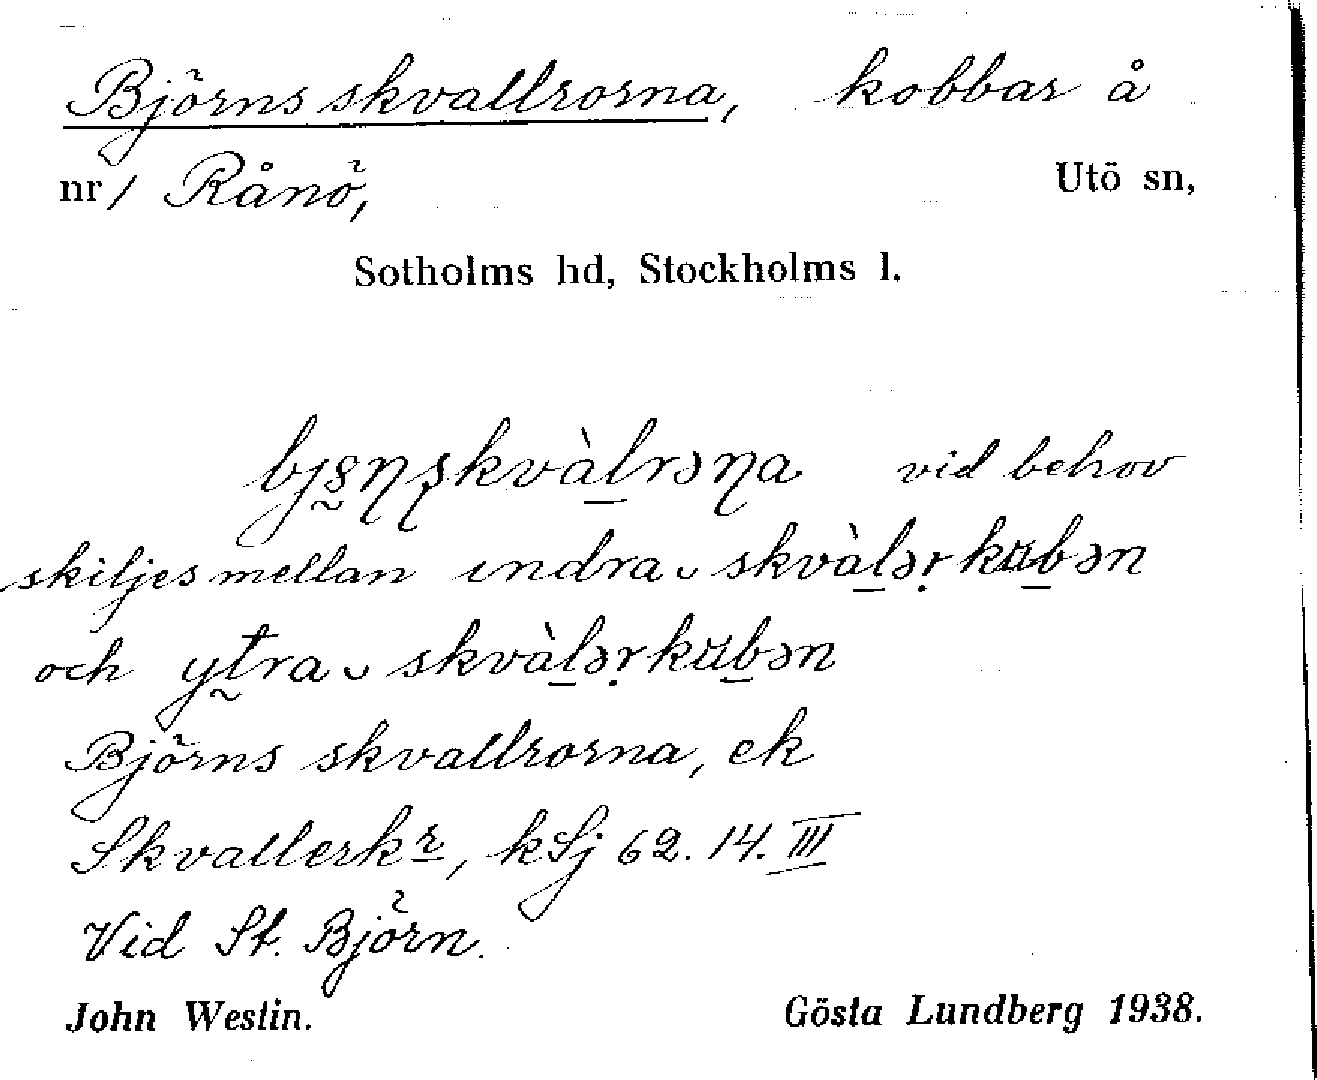 Björns skvallrorna, kobbar å
nr/ Rånö, Utö sn,
Sotholms hd, Stockholms l.
bjɞ̰ɳʂkvàl̲rəɳa vid behov
skiljes mellan ındra ᴗ skvàl̲əṛkᵾb̲ən
och yt̰ra ᴗ skvàl̲əṛkᵾb̲ən
Björns skvallrorna, ek
Skvallerkr, kSj 62. 14. III
Vid St. Björn.
John Westin. Gösta Lundberg 1938.